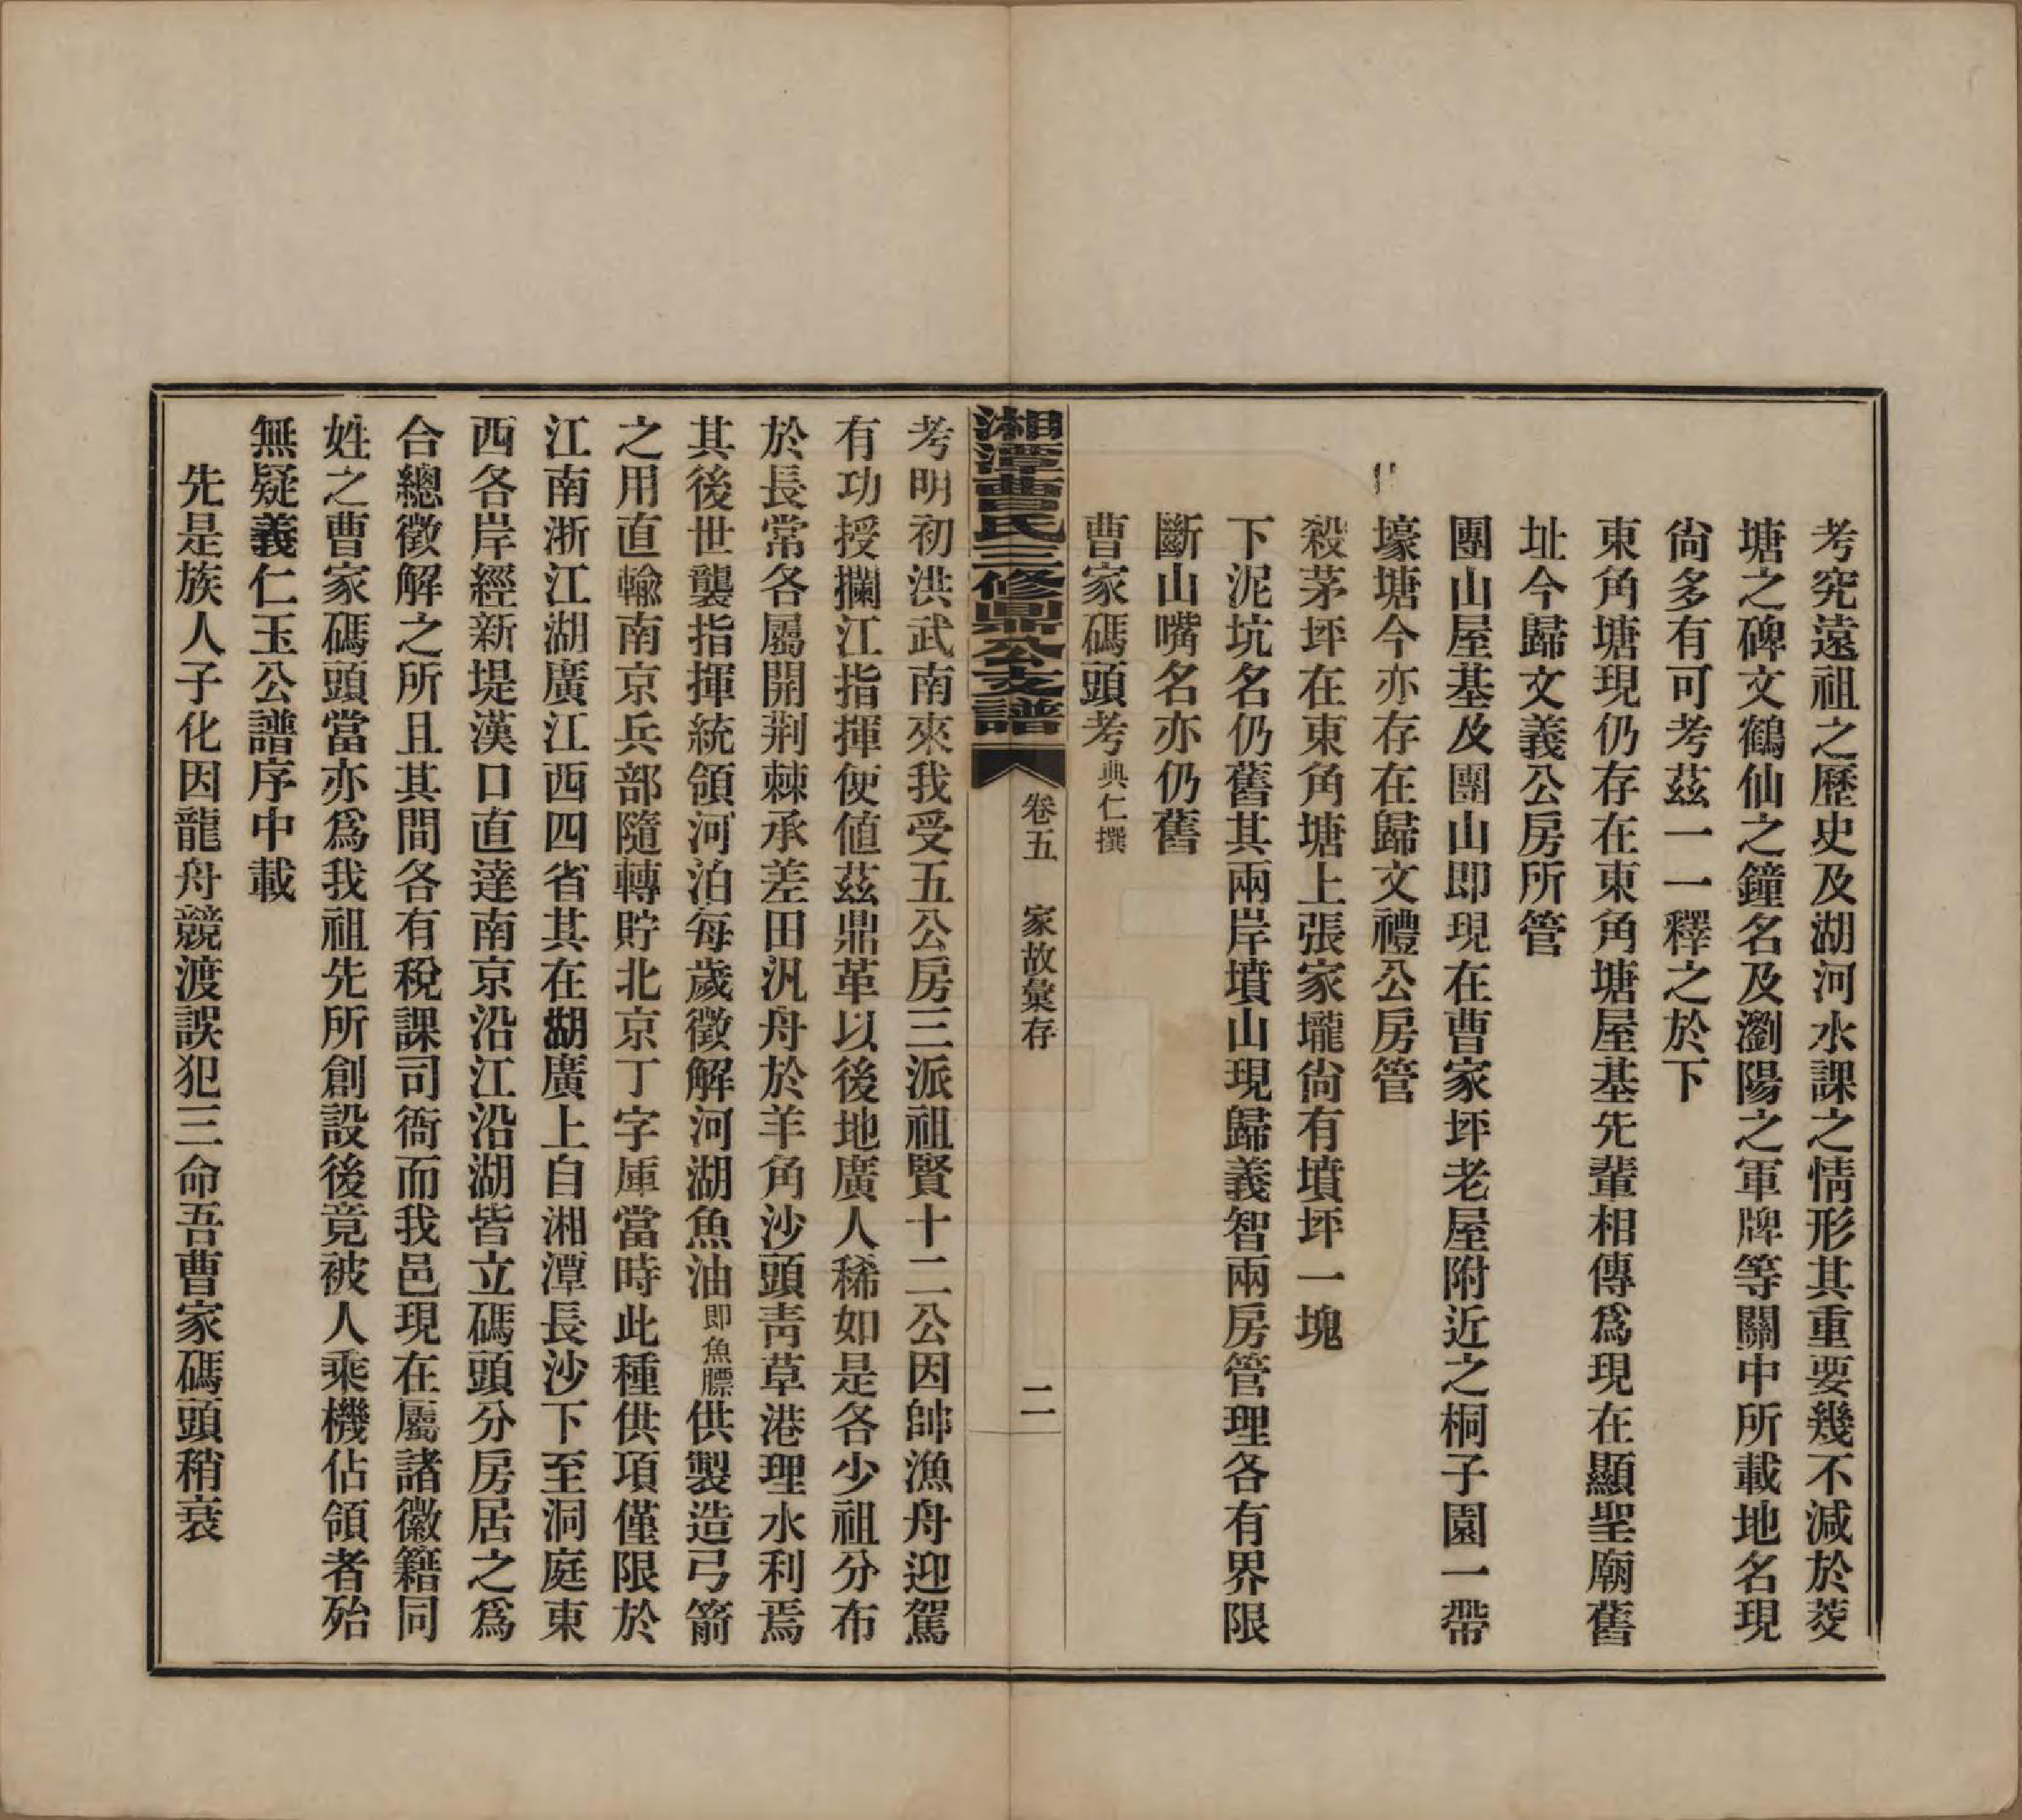 考究遠祖之歷史及湖河水課之情形其重要幾不減於菱
塘之碑文鶴仙之鐘名及瀏陽之軍牌等關中所載地名現
尙多有可考茲一一釋之於下
東角塘現仍存在東角塘屋基先輩相傳爲現在顯聖廟舊
址今歸文義公房所管
團山屋基及團山即現在曹家坪老屋附近之桐子園一帶
壕塘今亦存在歸文禮公房管
殺茅坪在東角塘上張家壠尙有墳坪一塊
下泥坑名仍舊其兩岸墳山現歸義智兩房管理各有界限
斷山嘴名亦仍舊
曹家碼頭考典仁撰
湘潭曹氏三修鼎公支譜 卷五 家故彙存 二
考明初洪武南來我受五公房三派祖賢十二公因帥漁舟迎駕
有功授攔江指揮使値茲鼎革以後地廣人稀如是各少祖分布
於長常各屬開荆棘承差田汎舟於羊角沙頭靑草港理水利焉
其後世襲指揮統領河泊每歲徵解河湖魚油即魚膘供製造弓箭
之用直輸南京兵部隨轉貯北京丁字庫當時此種供項僅限於
江南浙江湖廣江西四省其在湖廣上自湘潭長沙下至洞庭東
西各岸經新堤漢口直達南京沿江沿湖皆立碼頭分房居之爲
合總徵解之所且其間各有稅課司衙而我邑現在屬諸徽籍同
姓之曹家碼頭當亦爲我祖先所創設後竟被人乘機佔領者殆
無疑義仁玉公譜序中載
先是族人子化因龍舟競渡誤犯三命吾曹家碼頭稍衰